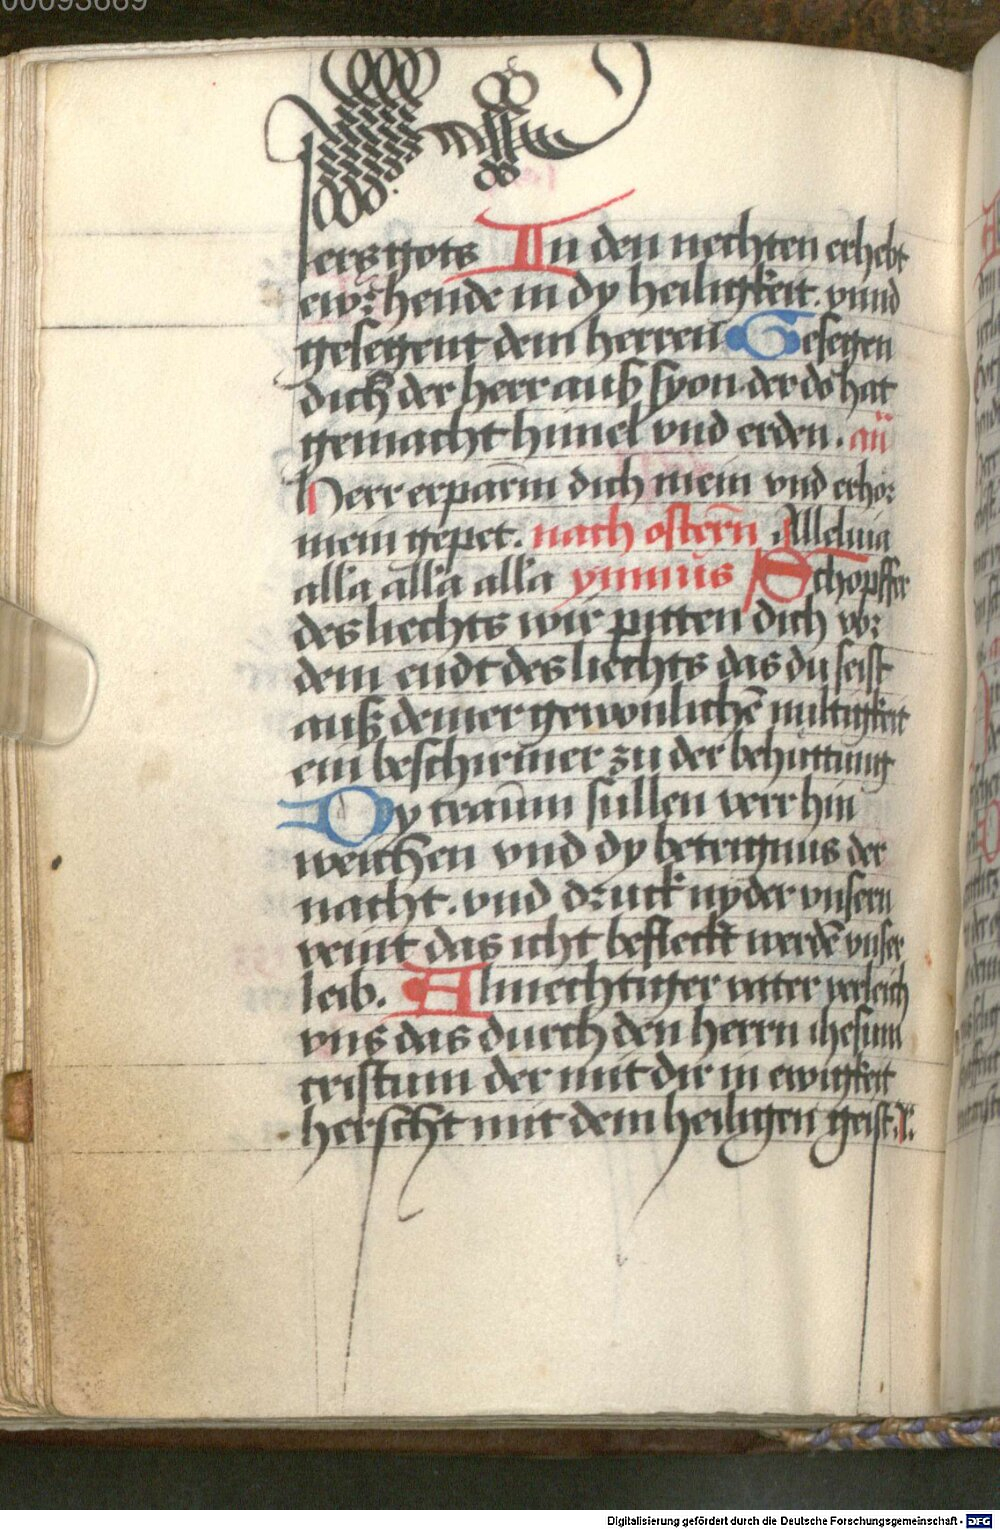 00093669
sers gots In den nechten erhebt
ewr hende in dy heiligkeit. vnnd
gesegent dem herren Gesegen
dich der herr auß syon der do hat
gemacht himel vnd erden. an̄
Herr erparm̄ dich mein vnd erhor
mein gepet. nach ostern̄ Alleluia
all'a all'a all'a ymnus Schopffer
des liechts wir pitten dich vor
dem endt des liechts das du seist
auß deiner gewonlichē miltigkeit
ein beschirmer zu der behuttung
Dy traum sullen verr hin
weichen vnd dy betrignus der
nacht. vnd druck nyder vnsern
veint das icht befleckt werdē vnser
leib. Almechtiger vatter verleich
vns das durch den herrn ihesum
cristum der mit dir in ewigkeit
herscht mit dem heiligen geist.
Digitalisierung gefördert durch die Deutsche Forschungsgemeinschaft - DFG